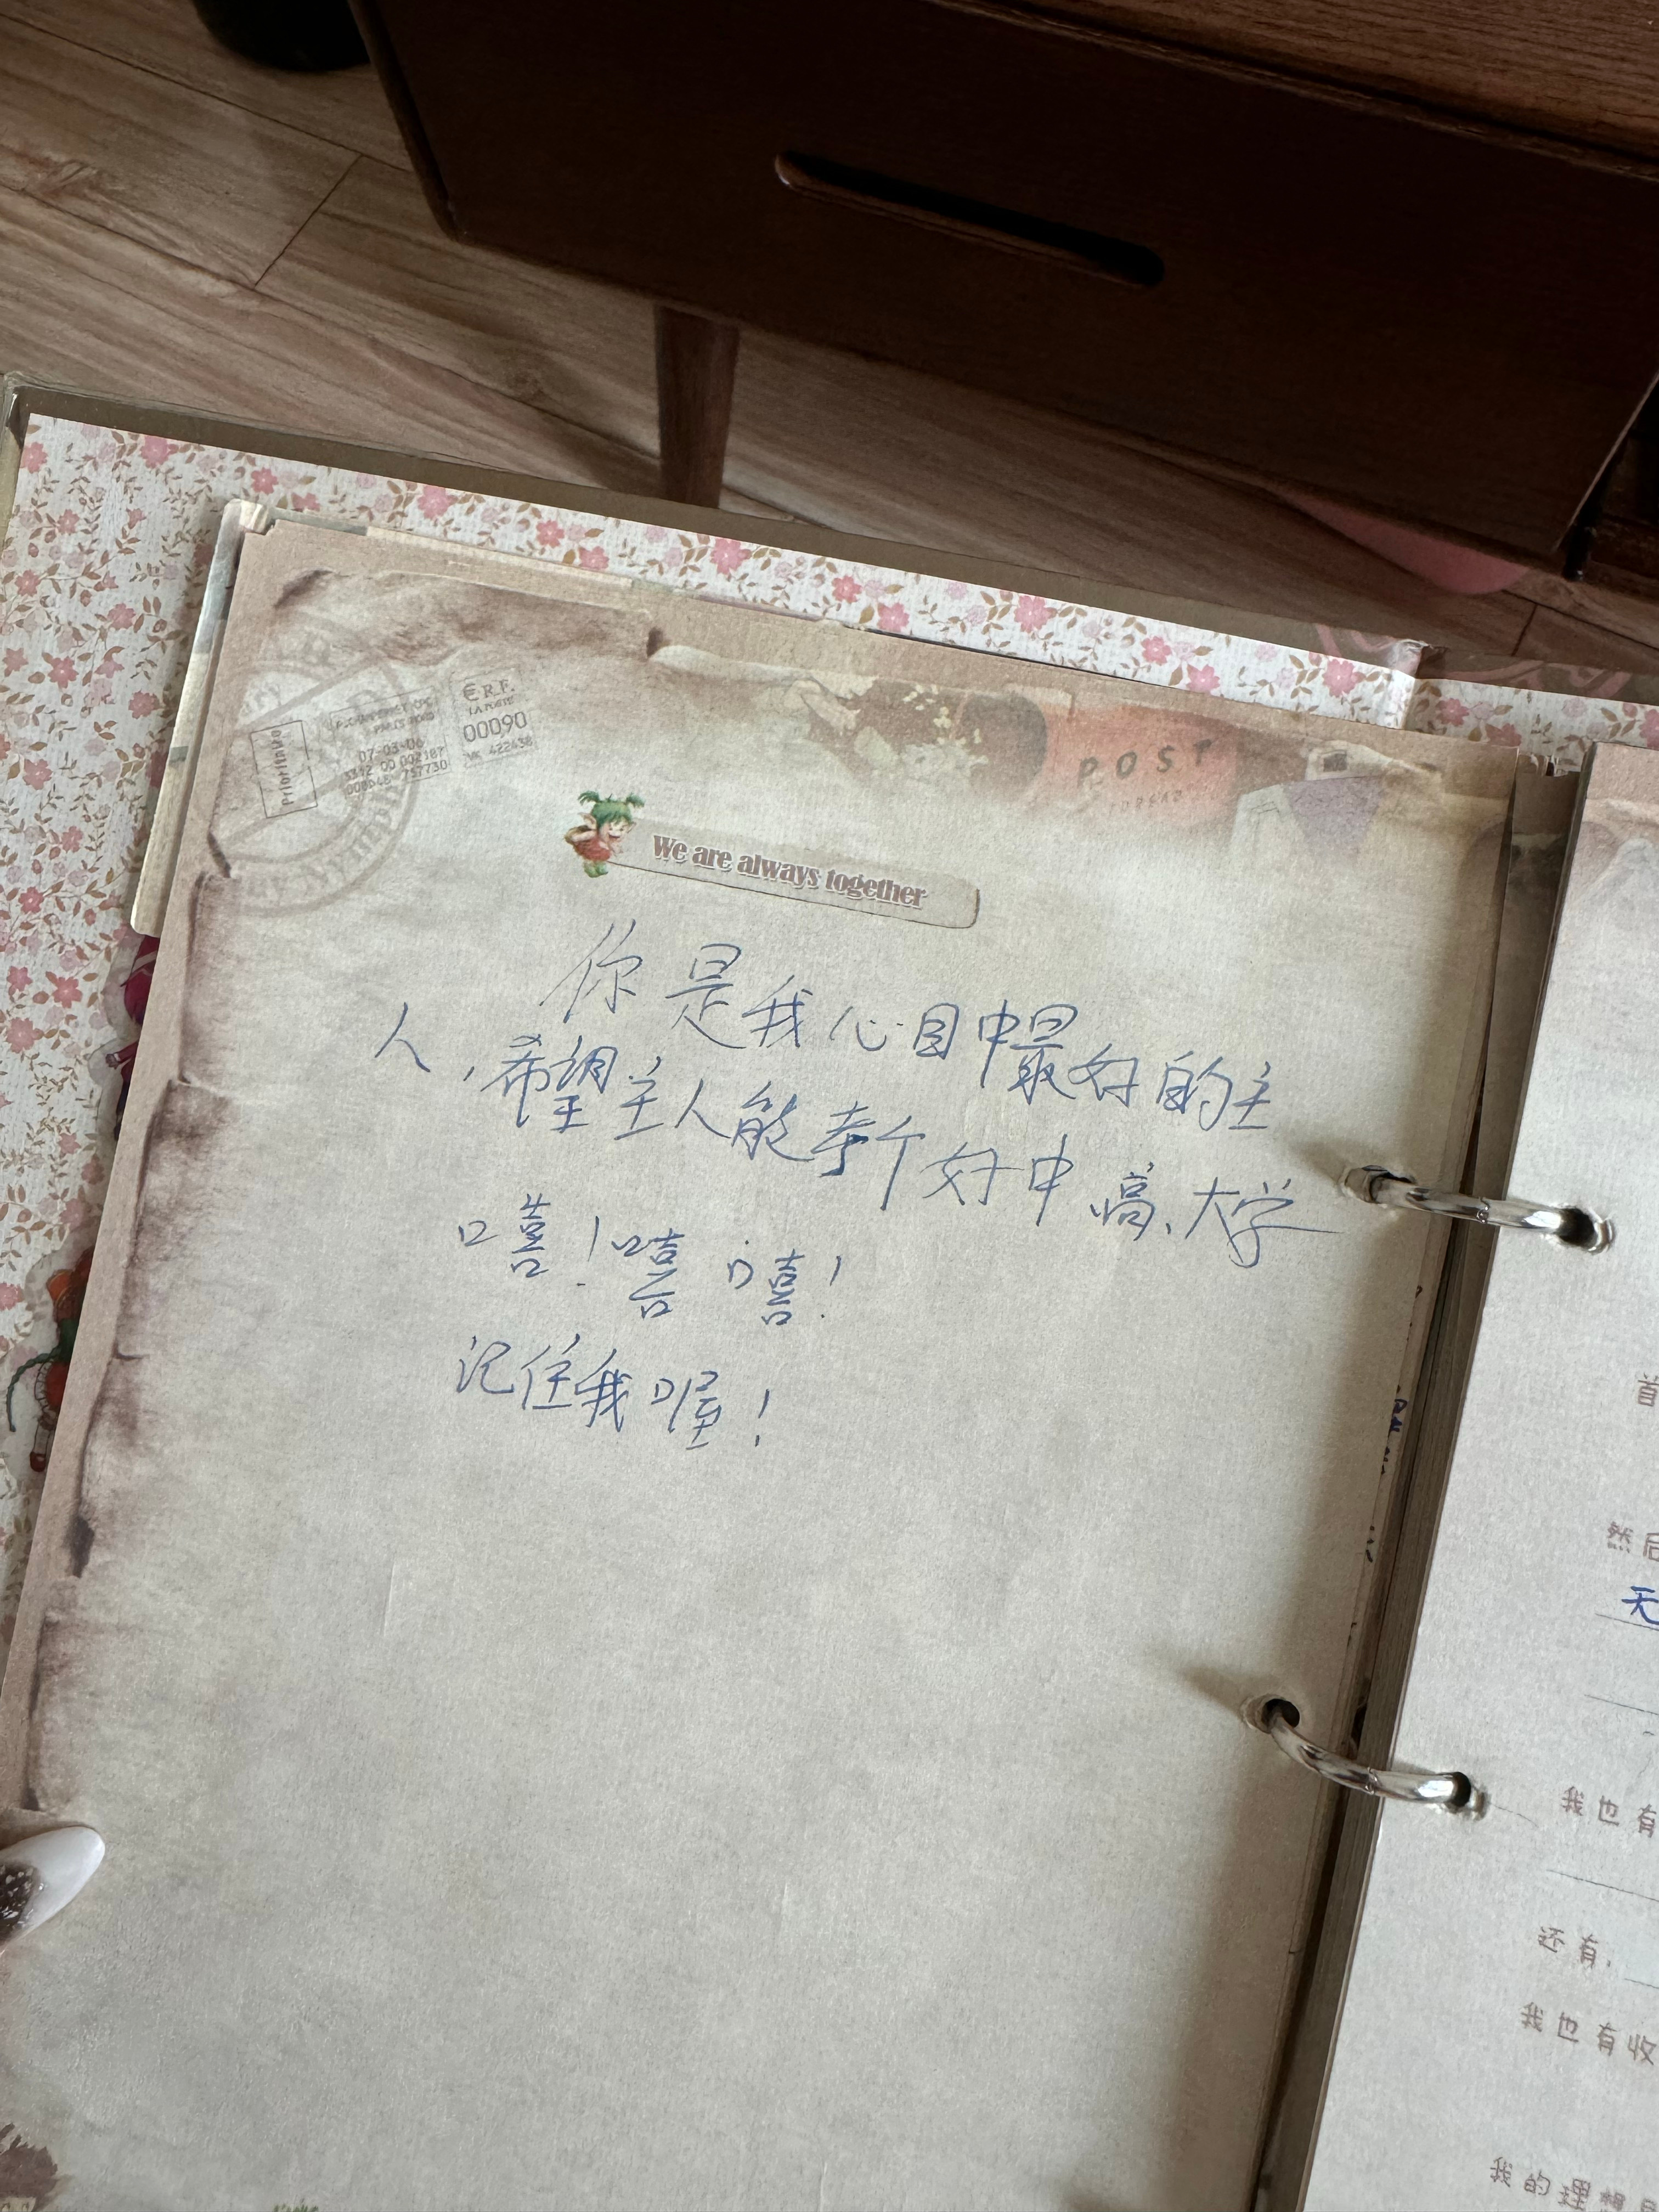 Prioritaire
07-03-06
€R.F.
LA POSTE
00090
POST
We are always together
你是我心目中最好的主
人,希望主人能考个好中、高、大学
嘻!嘻嘻!
记住我喔!
首
然后
天
我也有
还有,
我也有收
我的理想是